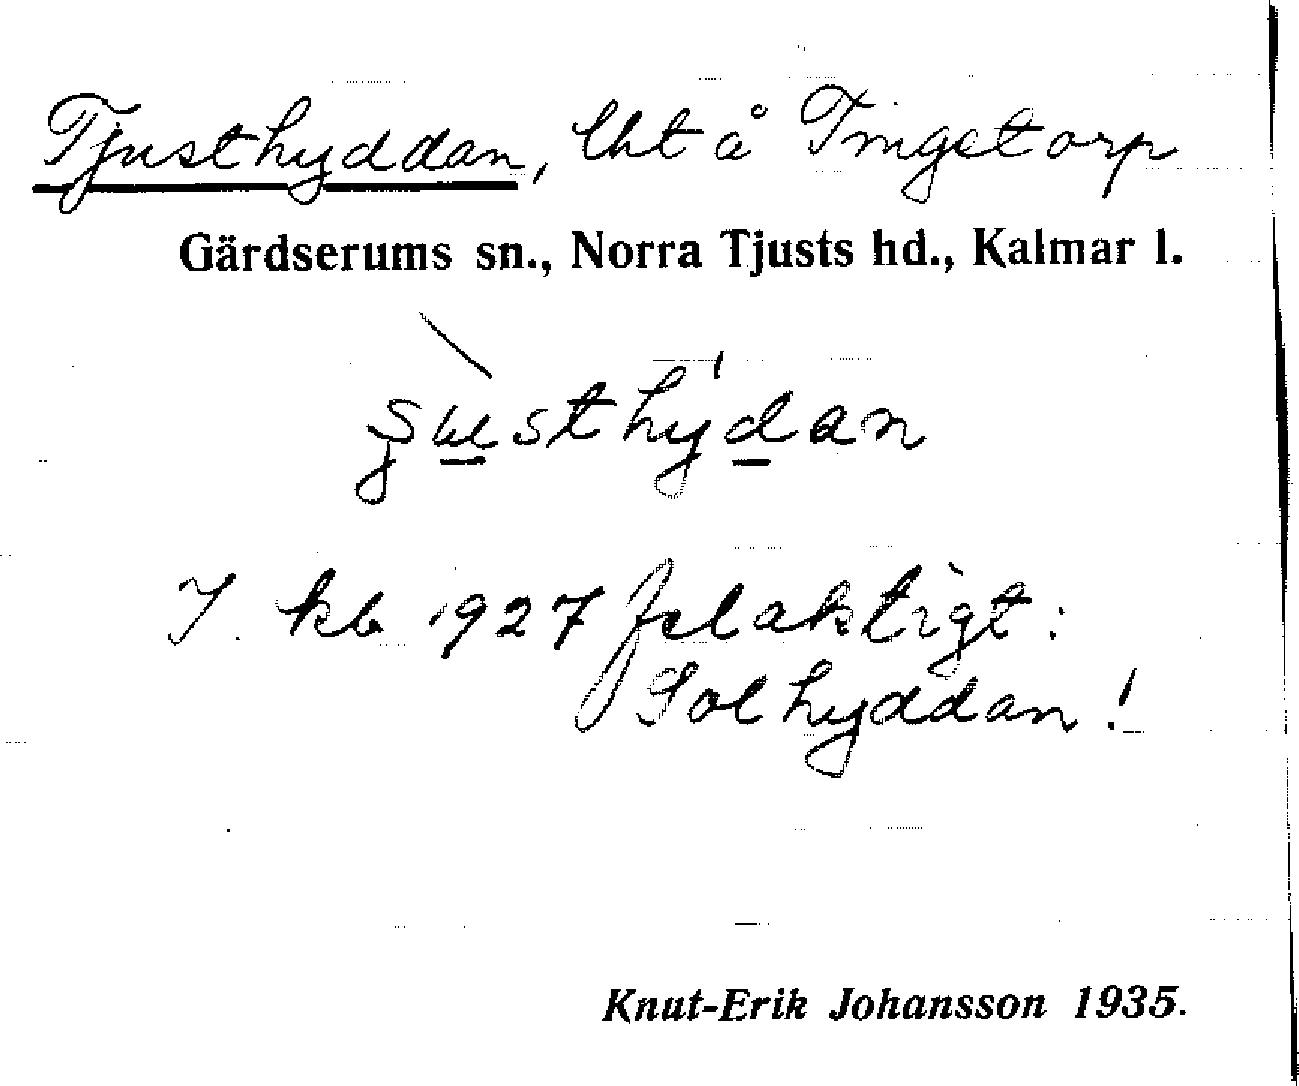 Tjusthyddan, lht å Tingstorp
Gärdserums sn., Norra Tjusts hd., Kalmar l.
I kb 1927 felaktigt:
Solhyddan!
Knut-Erik Johansson 1935.